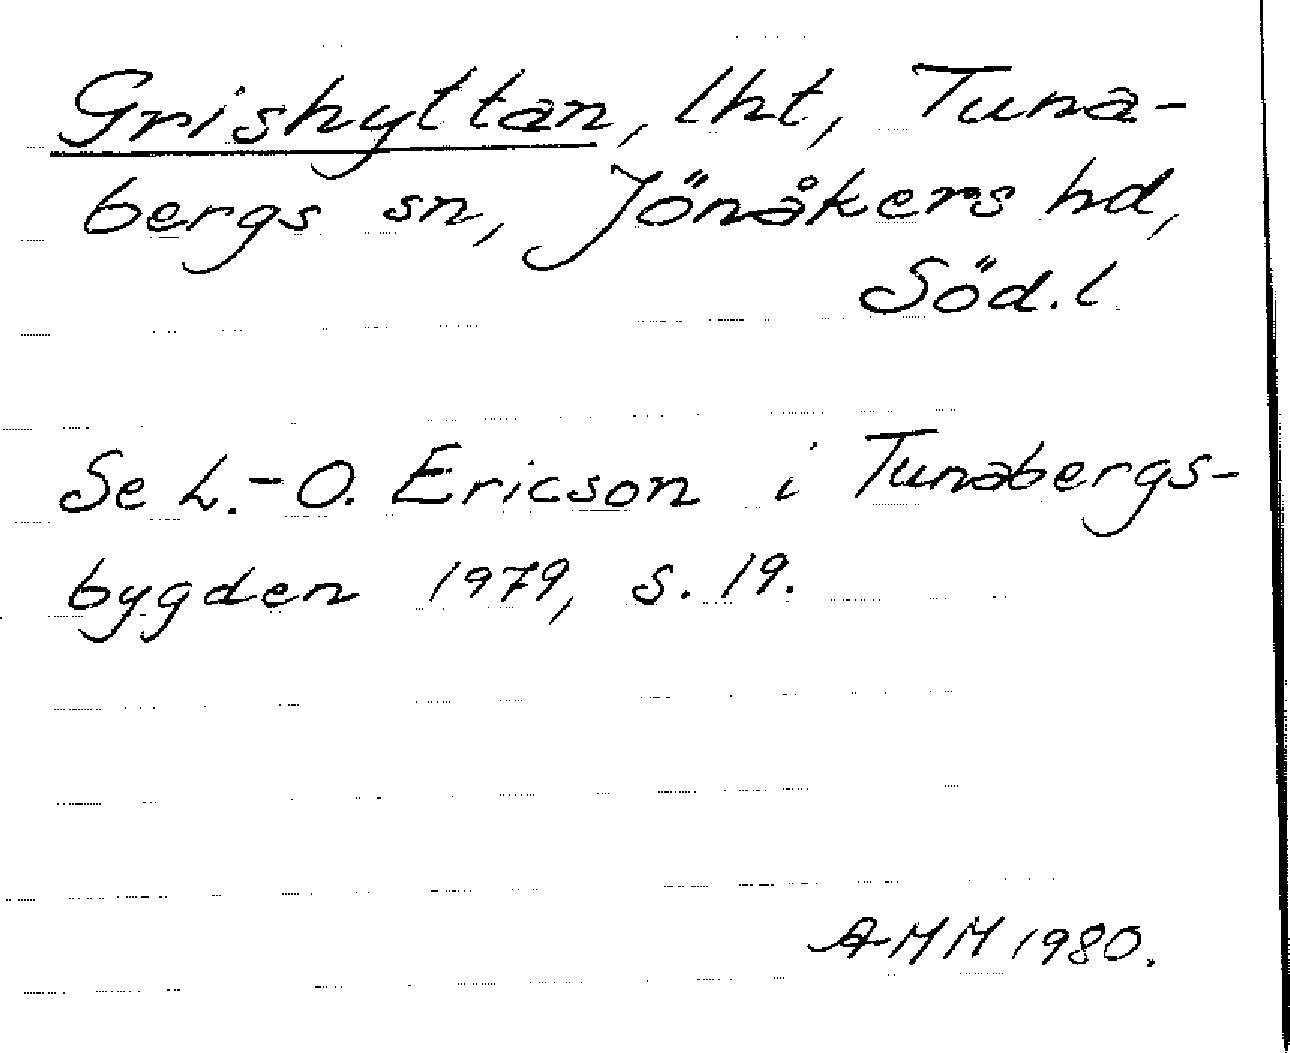 Grishyttan, lht, Tuna-
bergs sn, Jönåkers hd,
Söd.l
Se L.-O. Ericson i Tunabergs-
bygden 1979, s. 19.
AMM 1980.